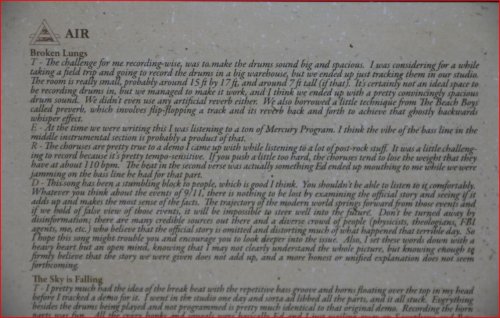 AIR
Broken Lungs
T - The challenge for me recording-wise, was to make the drums sound big and spacious. I was considering for a while
taking a field trip and going to record the drums in a big warehouse, but we ended up just tracking them in our studio.
The room is really small, probably around 15 ft by 17 ft, and around 7 ft tall (if that). It's certainly not an ideal space to
be recording drums in, but we managed to make it work, and I think we ended up with a pretty convincingly spacious
drum sound. We didn't even use any artificial reverb either. We also borrowed a little technique from The Beach Boys
called preverb, which involves flip-flopping a track and its reverb back and forth to achieve that ghostly backwards
whisper effect.
E - At the time we were writing this I was listening to a ton of Mercury Program. I think the vibe of the bass line in the
middle instrumental section is probably a product of that.
R - The choruses are pretty true to a demo I came up with while listening to a lot of post-rock stuff. It was a little challeng-
ing to record because it's pretty tempo-sensitive. If you push a little too hard, the choruses tend to lose the weight that they
have at about 110 bpm. The beat in the second verse was actually something Ed ended up mouthing to me while we were
jamming on the bass line he had for that part.
D - This song has been a stumbling block to people, which is good I think. You shouldn't be able to listen to it comfortably.
Whatever you think about the events of 9/11, there is nothing to be lost by examining the official story and seeing if it
adds up and makes the most sense of the facts. The trajectory of the modern world springs forward from those events and
if we hold of false view of those events, it will be impossible to steer well into the future. Don't be turned away by
disinformation; there are many credible sources out there and a diverse crowd of people (physicists, theologians, FBI
agents, me, etc.) who believe that the official story is omitted and distorting much of what happened that terrible day. So
I hope this song might trouble you and encourage you to look deeper into the issue. Also, I set these words down with a
heavy heart but an open mind, knowing that I may not clearly understand the whole picture, but knowing enough to
firmly believe that the story we were given does not add up, and a more honest or unified explanation does not seem
forthcoming.
The Sky is Falling
T - I pretty much had the idea of the break beat with the repetitive bass groove and horns floating over the top in my head
before I tracked a demo for it. I went in the studio one day and sorta ad libbed all the parts, and it all stuck. Everything
besides the drums being played and not programmed is pretty much identical to that original demo. Recording the horn